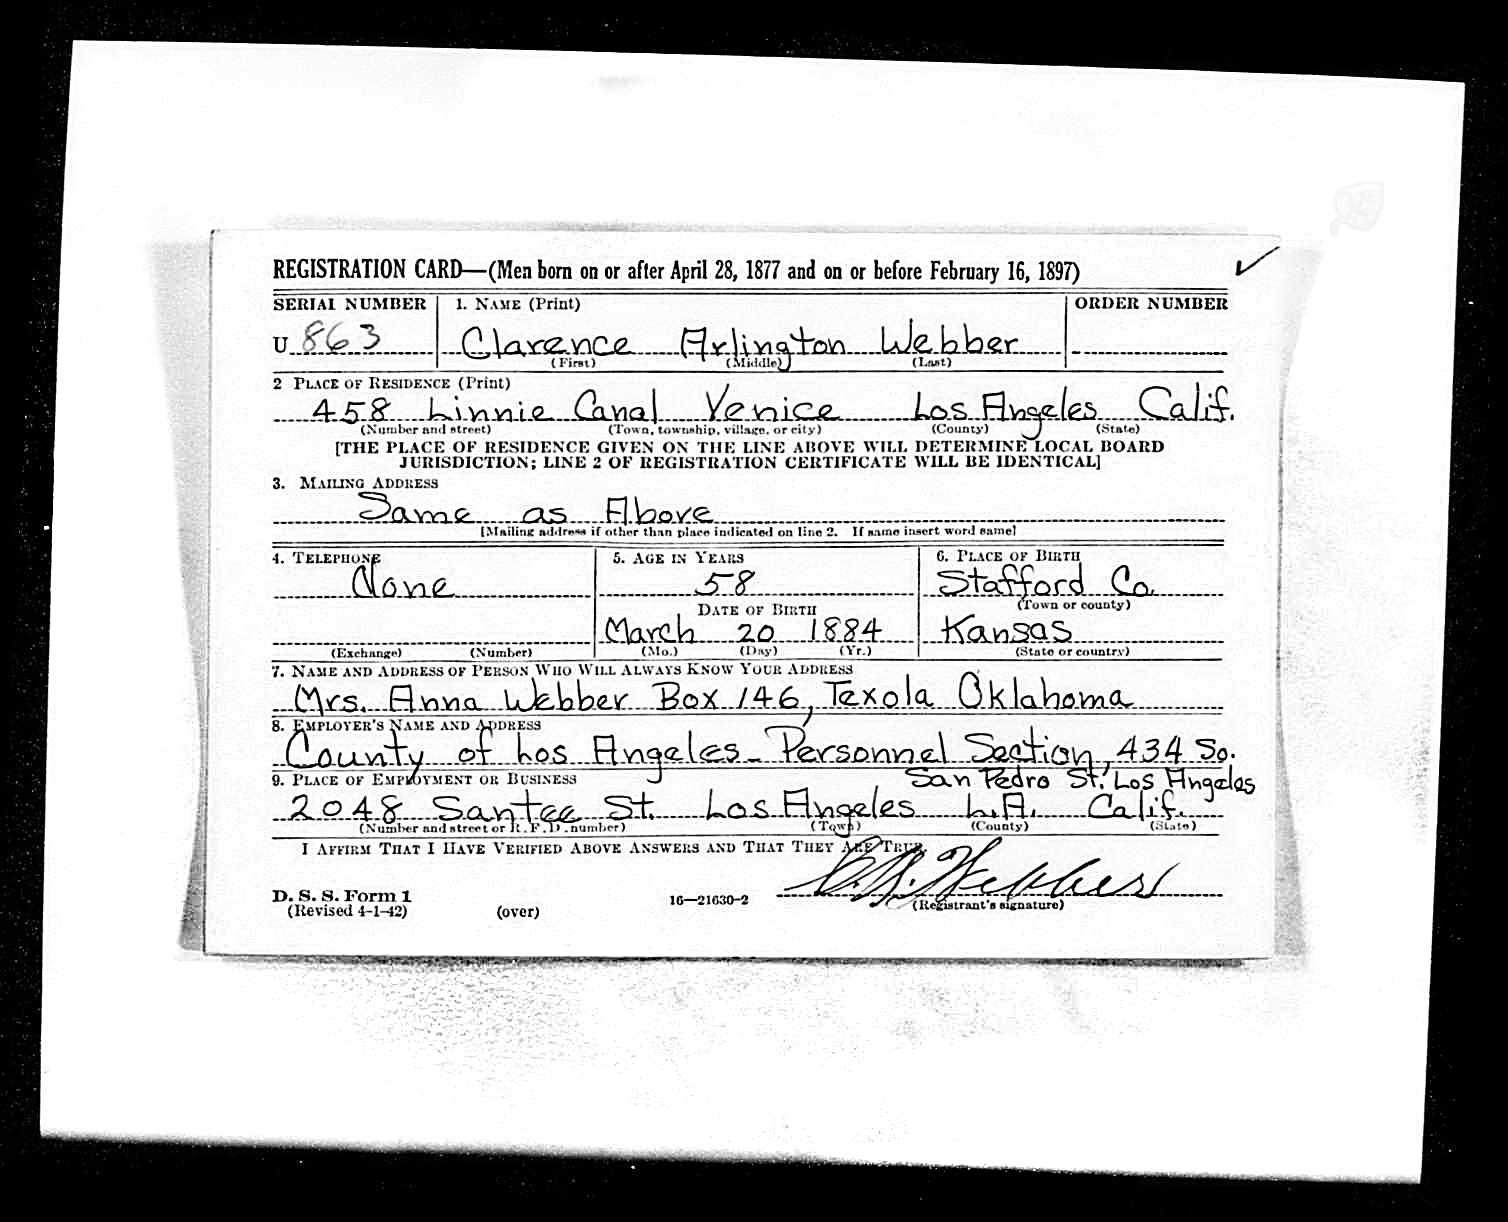 REGISTRATION CARD—(Men born on or after April 28, 1877 and on or before February 16, 1897)
SERIAL NUMBER
1. NAME (Print)
ORDER NUMBER
U 863
Clarence Arlington Webber
(First) (Middle) (Last)
2 PLACE OF RESIDENCE (Print)
458 Linnie Canal Venice Los Angeles Calif.
(Number and street) (Town, township, village, or city) (County) (State)
[THE PLACE OF RESIDENCE GIVEN ON THE LINE ABOVE WILL DETERMINE LOCAL BOARD
JURISDICTION; LINE 2 OF REGISTRATION CERTIFICATE WILL BE IDENTICAL]
3. MAILING ADDRESS
Same as Above
[Mailing address if other than place indicated on line 2. If same insert word same]
4. TELEPHONE
None
(Exchange) (Number)
5. AGE IN YEARS
58
DATE OF BIRTH
March 20 1884
(Mo.) (Day) (Yr.)
6. PLACE OF BIRTH
Stafford Co.
(Town or county)
Kansas
(State or country)
7. NAME AND ADDRESS OF PERSON WHO WILL ALWAYS KNOW YOUR ADDRESS
Mrs. Anna Webber Box 146, Texola Oklahoma
8. EMPLOYER'S NAME AND ADDRESS
County of Los Angeles - Personnel Section, 434 So.
San Pedro St. Los Angeles
9. PLACE OF EMPLOYMENT OR BUSINESS
2048 Santee St. Los Angeles L.A. Calif.
(Number and street or R. F. D. number) (Town) (County) (State)
I AFFIRM THAT I HAVE VERIFIED ABOVE ANSWERS AND THAT THEY ARE TRUE.
C. A. Webber
(Registrant's signature)
D. S. S. Form 1
(Revised 4-1-42)
(over)
16—21630-2